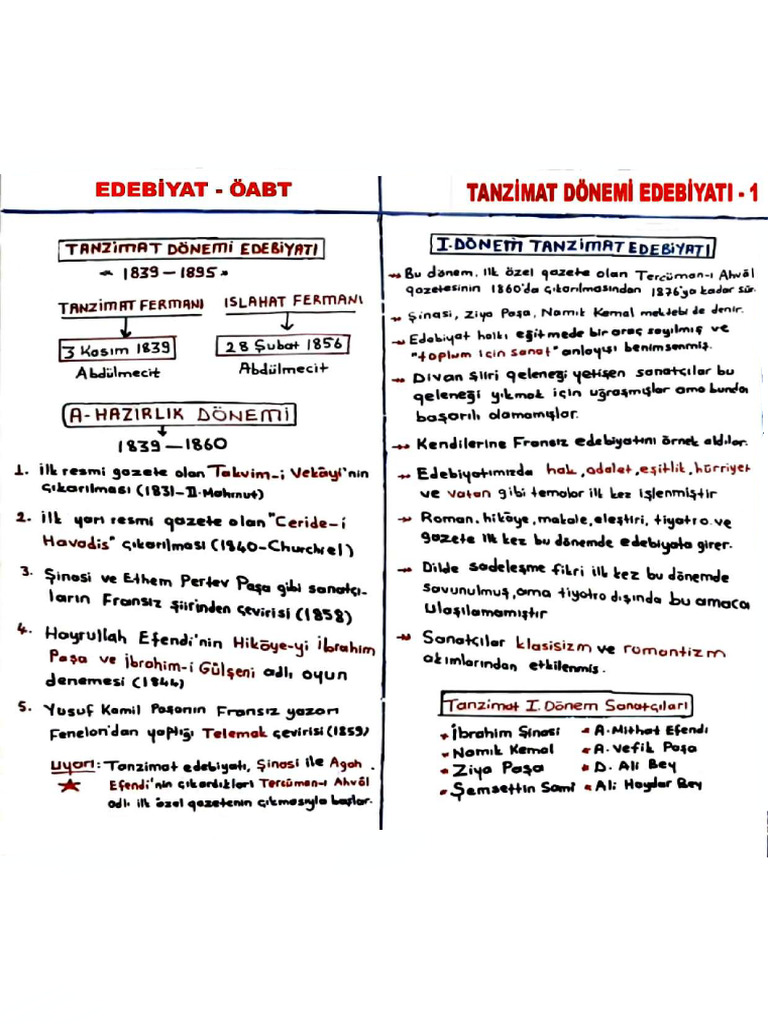 EDEBİYAT - ÖABT
TANZİMAT DÖNEMİ EDEBİYATI
1839 – 1895
TANZİMAT FERMANI
ISLAHAT FERMANI
3 Kasım 1839
28 Şubat 1856
Abdülmecit
Abdülmecit
A- HAZIRLIK DÖNEMİ
1839 – 1860
1. İlk resmi gazete olan Takvim-i Vekâyi'nin
çıkarılması (1831-II. Mahmut)
2. İlk yarı resmi gazete olan "Ceride-i
Havadis" çıkarılması (1840-Churchıel)
3. Şinasi ve Ethem Pertev Paşa gibi sanatçı-
ların Fransız şiirinden çevirisi (1858)
4. Hayrullah Efendi'nin Hikâye-yi İbrahim
Paşa ve İbrahim-i Gülşeni adlı oyun
denemesi (1844)
5. Yusuf Kamil Paşanın Fransız yazarı
Fenelon'dan yaptığı Telemak çevirisi (1859)
Uyarı: Tanzimat edebiyatı, Şinasi ile Agah
Efendi'nin çıkardıkları Tercüman-ı Ahvâl
adlı ilk özel gazetenin çıkmasıyla başlar.
TANZİMAT DÖNEMİ EDEBİYATI - 1
I. DÖNEM TANZİMAT EDEBİYATI
Bu dönem, ilk özel gazete olan Tercüman-ı Ahvâl
gazetesinin 1860'da çıkarılmasından 1876'ya kadar sür.
Şinasi, Ziya Paşa, Namık Kemal mektebi de denir.
Edebiyat halkı eğitmede bir araç sayılmış ve
"toplum için sanat" anlayışı benimsenmiş.
Divan Şiiri geleneği yetişen sanatçılar bu
geleneği yıkmak için uğraşmışlar ama bunda
başarılı olamamışlar.
Kendilerine Fransız edebiyatını örnek aldılar.
Edebiyatımızda hak, adalet, eşitlik, hürriyet
ve vatan gibi temalar ilk kez işlenmiştir
Roman, hikâye, makale, eleştiri, tiyatro ve
gazete ilk kez bu dönemde edebiyata girer.
Dilde sadeleşme fikri ilk kez bu dönemde
savunulmuş, ama tiyatro dışında bu amaca
ulaşılamamıştır
Sanatçılar klasisizm ve romantizm
akımlarından etkilenmiş.
Tanzimat I. Dönem Sanatçıları
İbrahim Şinasi
A. Mithat Efendi
Namık Kemal
A. Vefik Paşa
Ziya Paşa
D. Ali Bey
Şemsettin Sami
Ali Haydar Bey